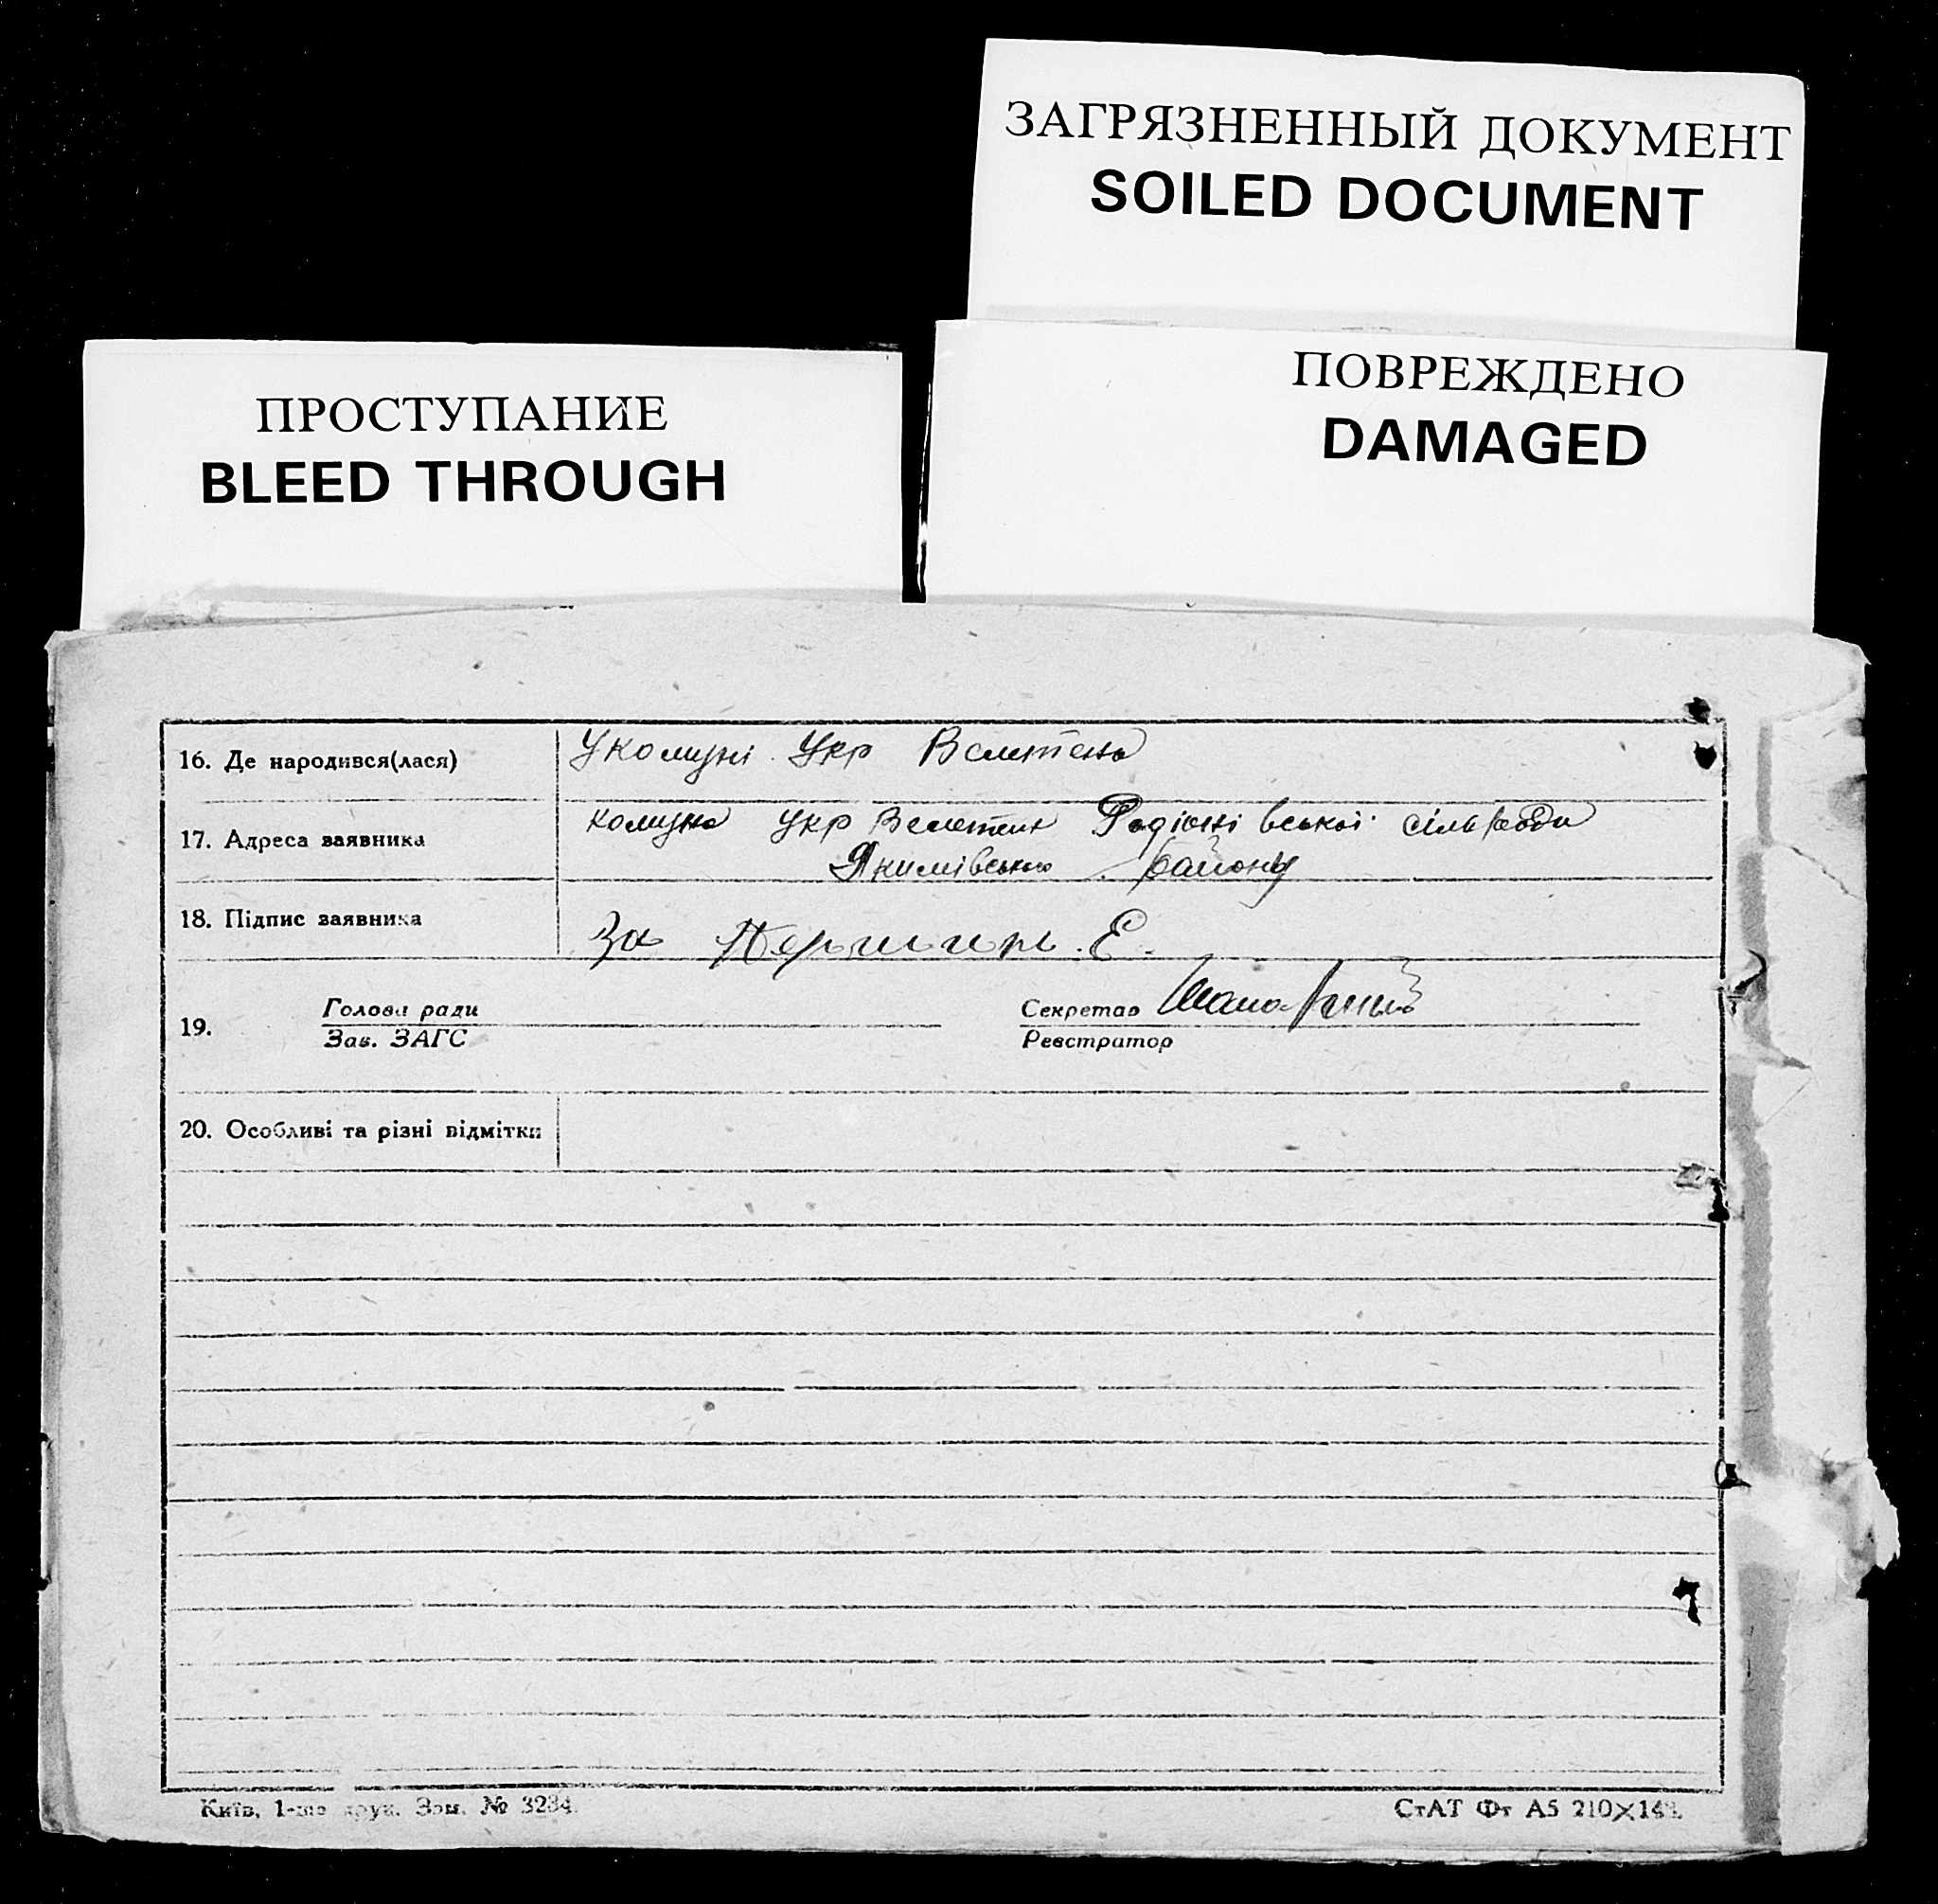 ЗАГРЯЗНЕННЫЙ ДОКУМЕНТ
SOILED DOCUMENT
ПОВРЕЖДЕНО
DAMAGED
ПРОСТУПАНИЕ
BLEED THROUGH
16. Де народився(лася) У комуні Укр
17. Адреса заявника комуна Укр сільради
Якимівського району
18. Підпис заявника За
Голова ради Секретар
19.
Зав. ЗАГС Реєстратор
20. Особливі та різні відмітки
Київ, 1-ша друк. Зам. № 3234.
СтАТ Фт А5 210×148.